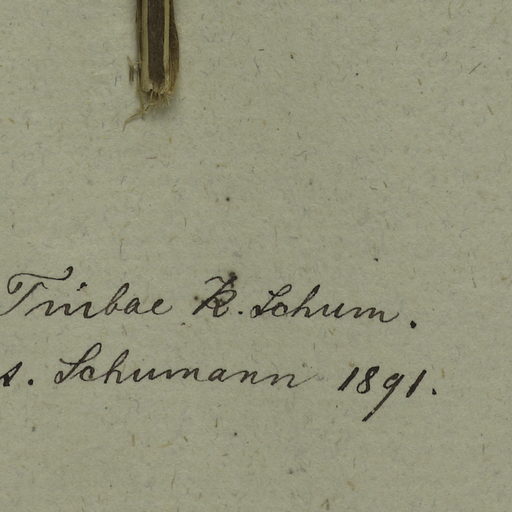 Tribae K. Schum.
s. Schumann 1891.